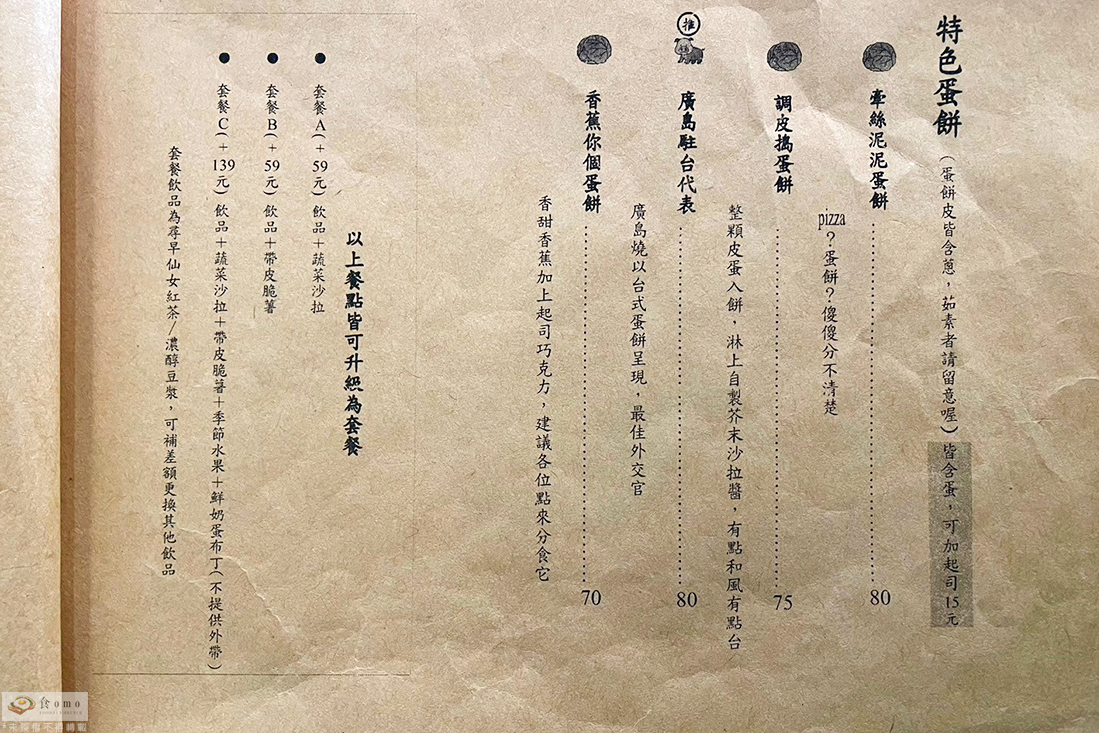 特色蛋餅(蛋餅皮皆含蔥，茹素者請留意喔)皆含蛋，可加起司15元
牽絲泥泥蛋餅……80
pizza？蛋餅？傻傻分不清楚
調皮搗蛋餅……75
整顆皮蛋入餅，淋上自製芥末沙拉醬，有點和風有點台
推
廣島駐台代表……80
廣島燒以台式蛋餅呈現，最佳外交官
香蕉你個蛋餅……70
香甜香蕉加上起司巧克力，建議各位點來分食它
以上餐點皆可升級為套餐
● 套餐A(+59元)飲品+蔬菜沙拉
● 套餐B(+59元)飲品+帶皮脆薯
● 套餐C(+139元)飲品+蔬菜沙拉+帶皮脆薯+季節水果+鮮奶蛋布丁(不提供外帶)
套餐飲品為尋早仙女紅茶/濃醇豆漿，可補差額更換其他飲品
食omo
未授權不得轉載